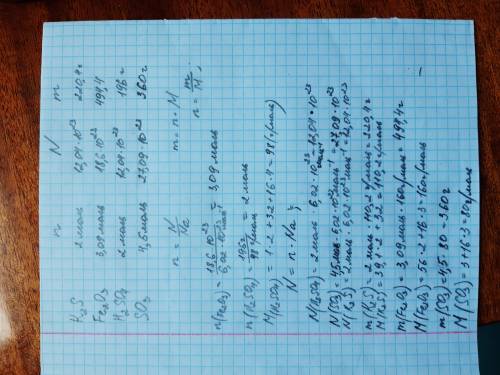 n N m
K₂S 2 моль 12,04·10²³ 220,4 г
Fe₂O₃ 3,09 моль 18,6·10²³ 494,4
H₂SO₄ 2 моль 12,04·10²³ 196 г
SO₃ 4,5 моль 27,09·10²³ 360 г
n = N/Na m = n·M n = m/M
n(Fe₂O₃) = 18,6·10²³ / 6,02·10²³ моль⁻¹ = 3,09 моль
n(H₂SO₄) = 196 г / 98 г/моль = 2 моль
M(H₂SO₄) = 1·2+32+16·4 = 98 г/моль
N = n·Na
N(H₂SO₄) = 2 моль · 6,02·10²³ моль⁻¹ = 12,04·10²³
N(SO₃) = 4,5 моль · 6,02·10²³ моль⁻¹ = 27,09·10²³
N(K₂S) = 2 моль · 6,02·10²³ моль⁻¹ = 12,04·10²³
m(K₂S) = 2 моль · 110,2 г/моль = 220,4 г
M(K₂S) = 39,1·2+32 = 110,2 г/моль
m(Fe₂O₃) = 3,09 моль · 160 г/моль = 494,4 г
M(Fe₂O₃) = 56·2+16·3 = 160 г/моль
m(SO₃) = 4,5·80 = 360 г
M(SO₃) = 3+16·3 = 80 г/моль